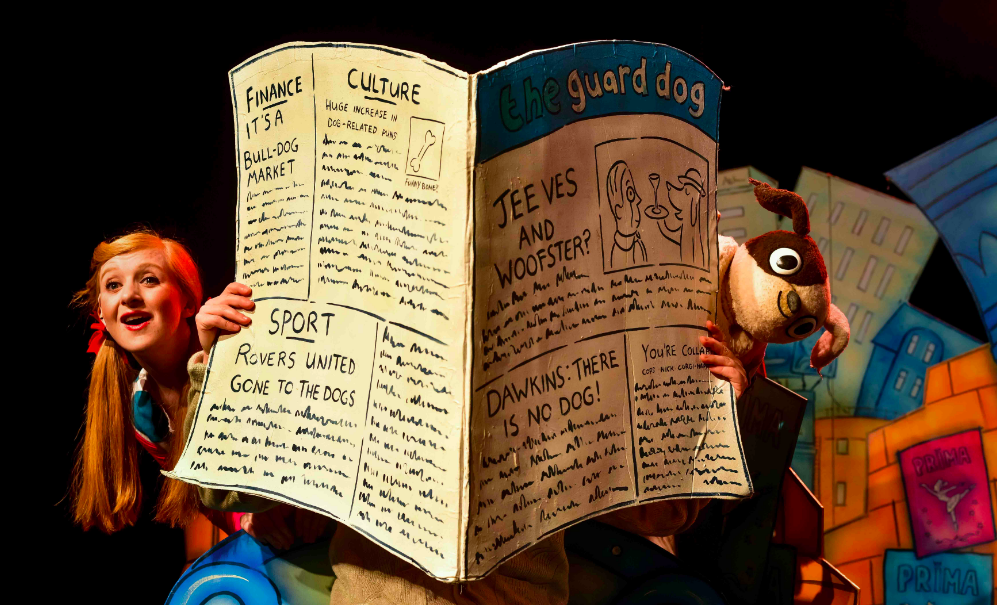 FINANCE
IT'S A
BULL-DOG
MARKET
CULTURE
HUGE INCREASE IN
DOG-RELATED PUNS
FUNNY BONE?
SPORT
ROVERS UNITED
GONE TO THE DOGS
the guard dog
JEEVES
AND
WOOFSTER?
DAWKINS: THERE
IS NO DOG!
YOU'RE
COPS NICK
PRIMA
PRIMA